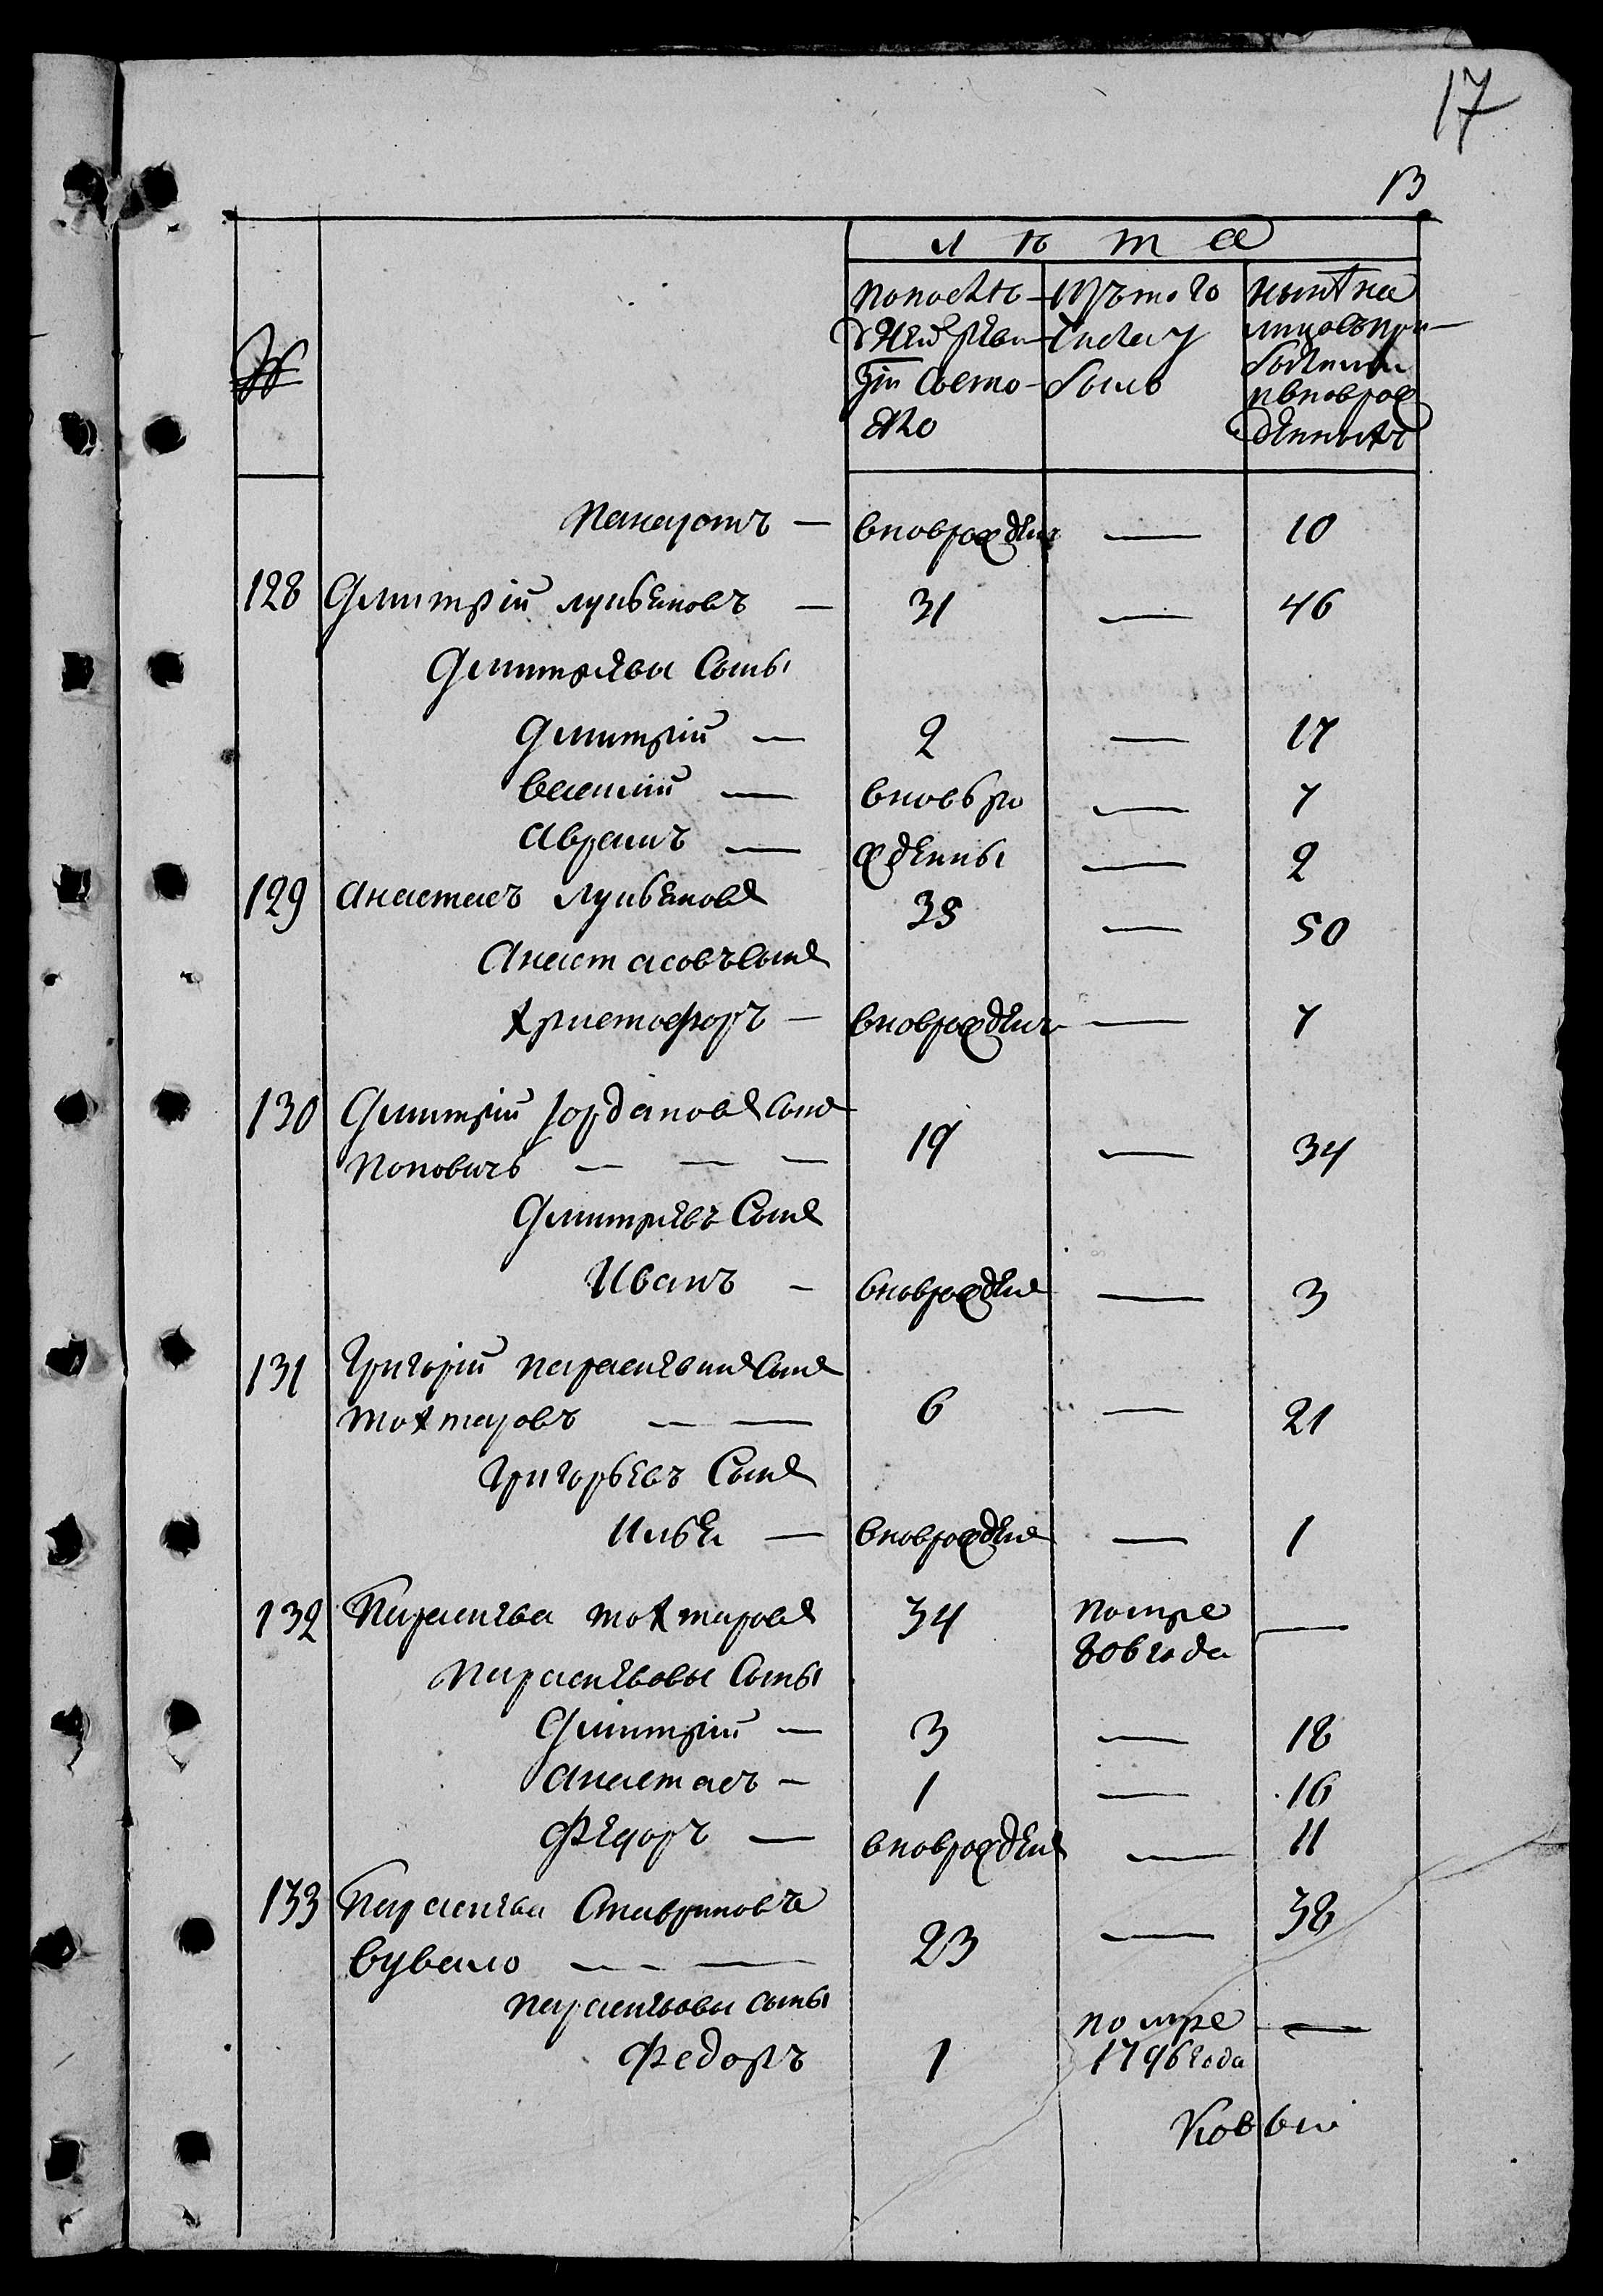 17
13
лѣта
№
попослѣ
дней реви
зіи состо
яло
изъ того
числа у
было
нынѣ на
лицо съ при
былыми
и вновь рож
денными
Панаіотъ — вновь рожденъ — 10
128 Дмитрій Лукьяновъ — 31 — 46
Дмитріевы сыны
Дмитрій — 2 — 17
Василій — вновь ро — 7
Аврамъ — жденны — 2
129 Анастасъ Лукьяновъ 35 — 50
Анастасовъ сынъ
Христофоръ — вновь рожденъ — 7
130 Дмитрій Іордановъ сынъ
Поповичь — — — 19 — 34
Дмитріевъ сынъ
Иванъ — вновь рожденъ — 3
131 Григорій Параскевинъ сынъ
Тохтаровъ — — 6 — 21
Григорьевъ сынъ
Илья — вновь рожденъ — 1
132 Параскева Тохтаровъ 34 помре —
806 года
Параскевовы сыны
Дмитрій — 3 — 18
Анастасъ — 1 — 16
Федоръ — вновь рожденъ — 11
133 Параскева Ставриновъ 38
Бувало — — — 23 —
Параскевовы сыны
Федоръ 1 помре —
1796 года